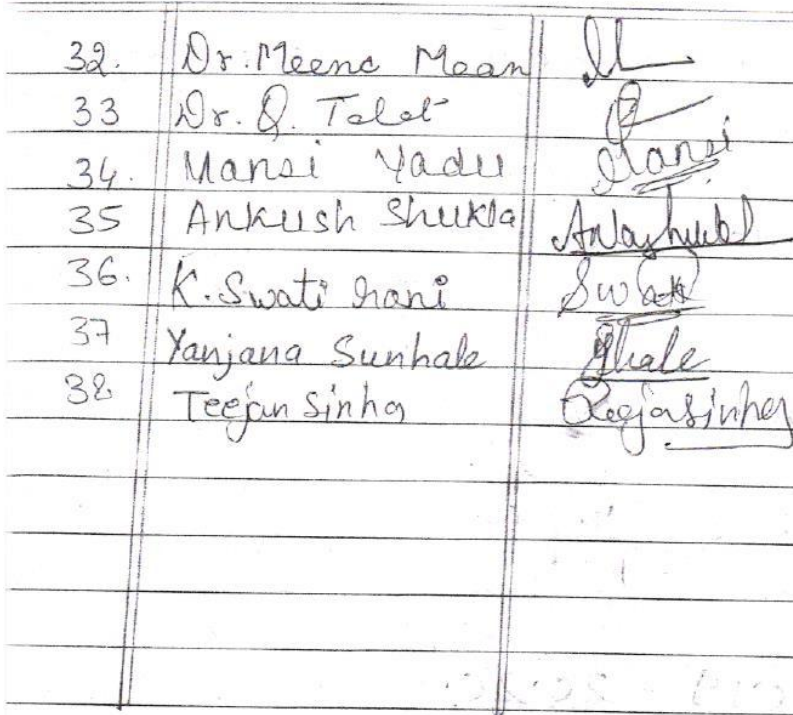 32. Dr. Meena Maan
33 Dr. Q. Talat
34. Mansi Yadu Mansi
35 Ankush Shukla
36. K. Swati Rani Swati
37 Yanjana Sunhale
38 Teejan Sinha